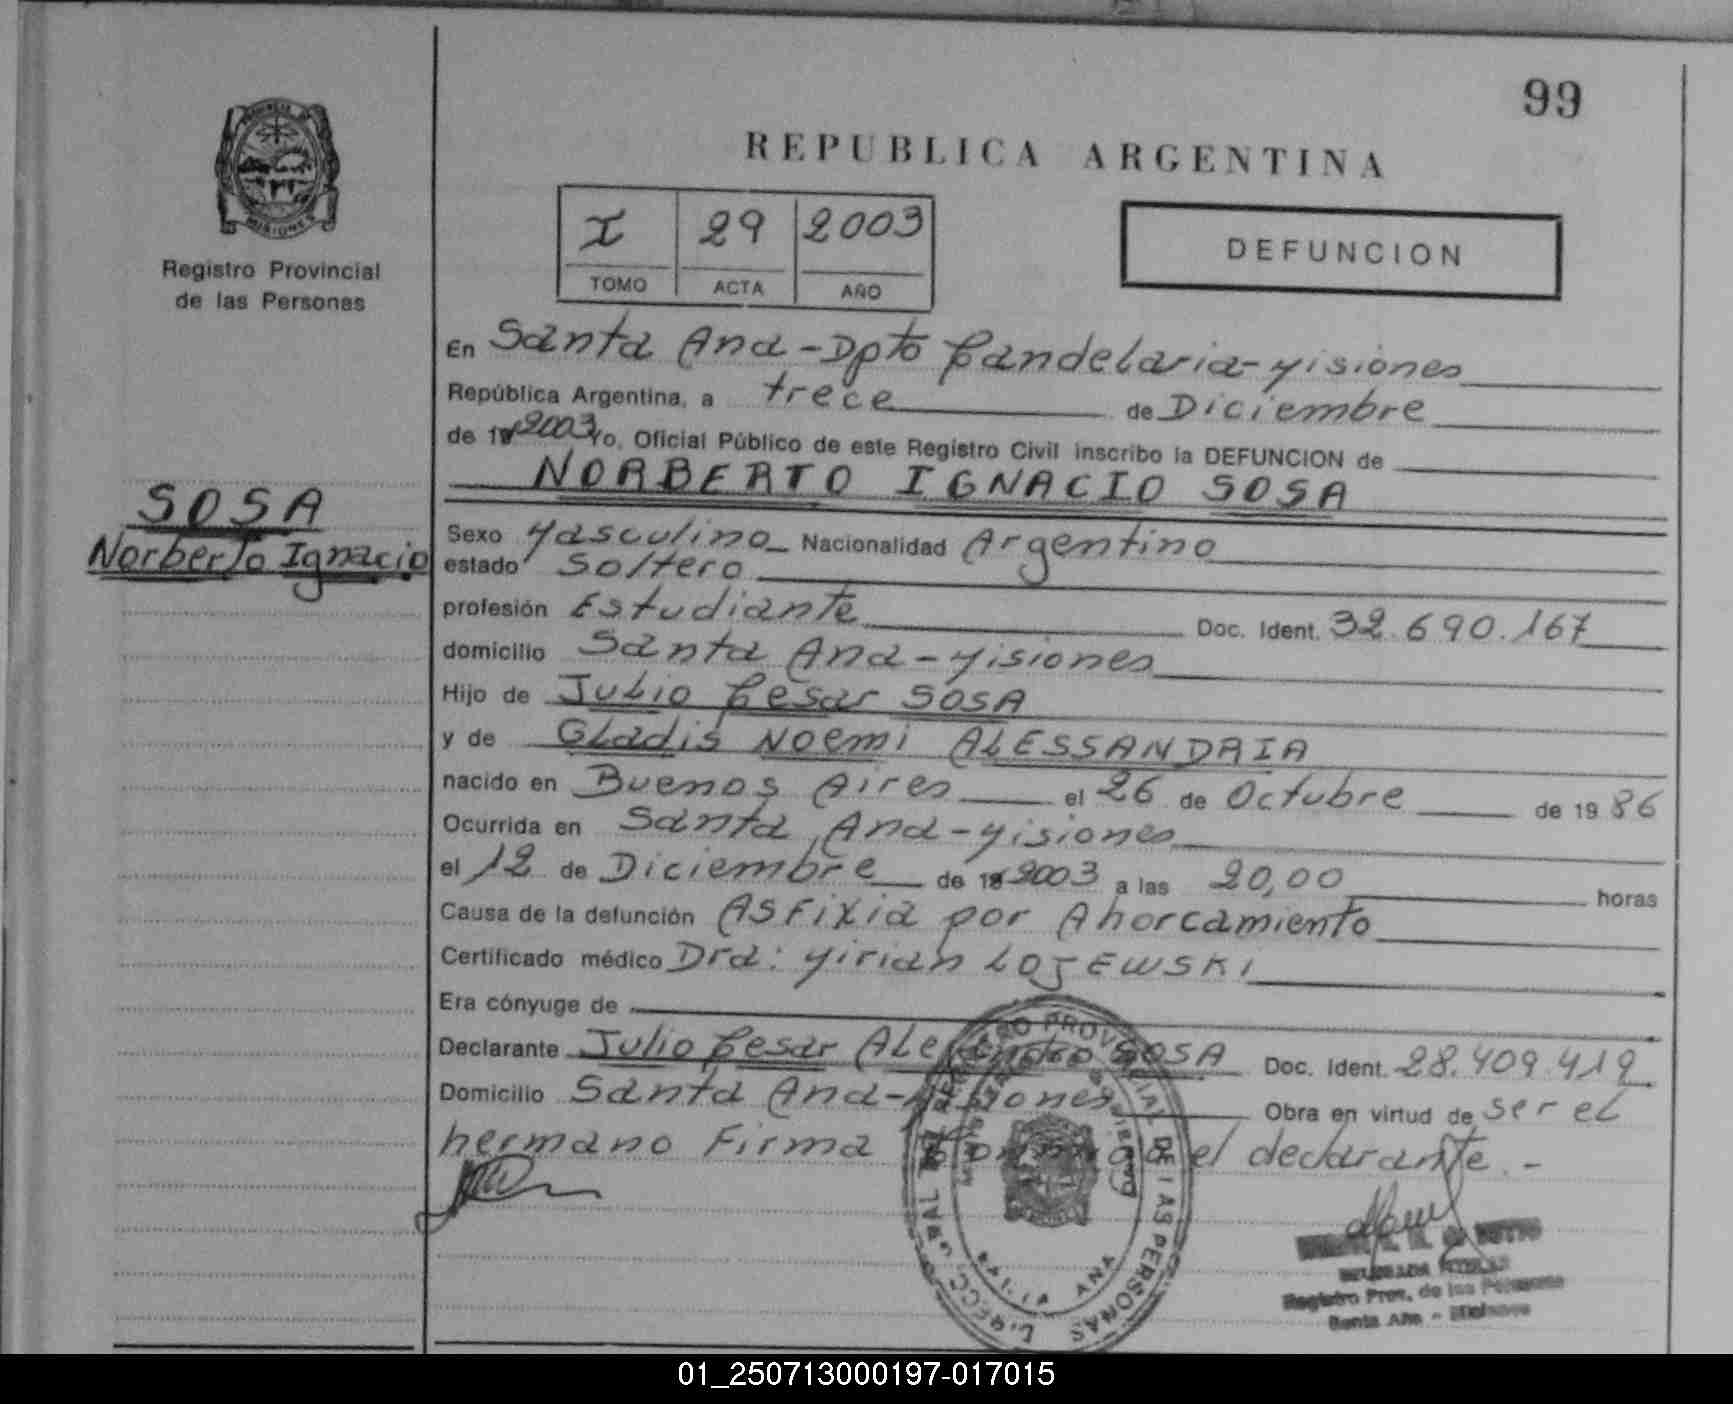 99
REPUBLICA ARGENTINA
MISIONES
Registro Provincial
de las Personas
I 29 2003
TOMO ACTA AÑO
DEFUNCION
En Santa Ana-Dpto Candelaria-Misiones
República Argentina, a trece de Diciembre
de 19 2003 Yo, Oficial Público de este Registro Civil inscribo la DEFUNCION de
NORBERTO IGNACIO SOSA
SOSA
Norberto Ignacio
Sexo Masculino Nacionalidad Argentino
estado Soltero
profesión Estudiante Doc. Ident. 32.690.167
domicilio Santa Ana-Misiones
Hijo de Julio Cesar SOSA
y de GLadis Noemi ALESSANDRIA
nacido en Buenos Aires el 26 de Octubre de 19 86
Ocurrida en Santa Ana-Misiones
el 12 de Diciembre de 19 2003 a las 20,00 horas
Causa de la defunción Asfixia por Ahorcamiento
Certificado médico Dra: Mirian LOJEWSKI
Era cónyuge de
Declarante Julio Cesar ALejandro SOSA Doc. Ident. 28.409.419
Domicilio Santa Ana-Misiones Obra en virtud de ser el
hermano Firma el declarante.-
REGISTRO PROVINCIAL DE LAS PERSONAS
Registro Prov. de las Personas
Santa Ana - Misiones
01_250713000197-017015